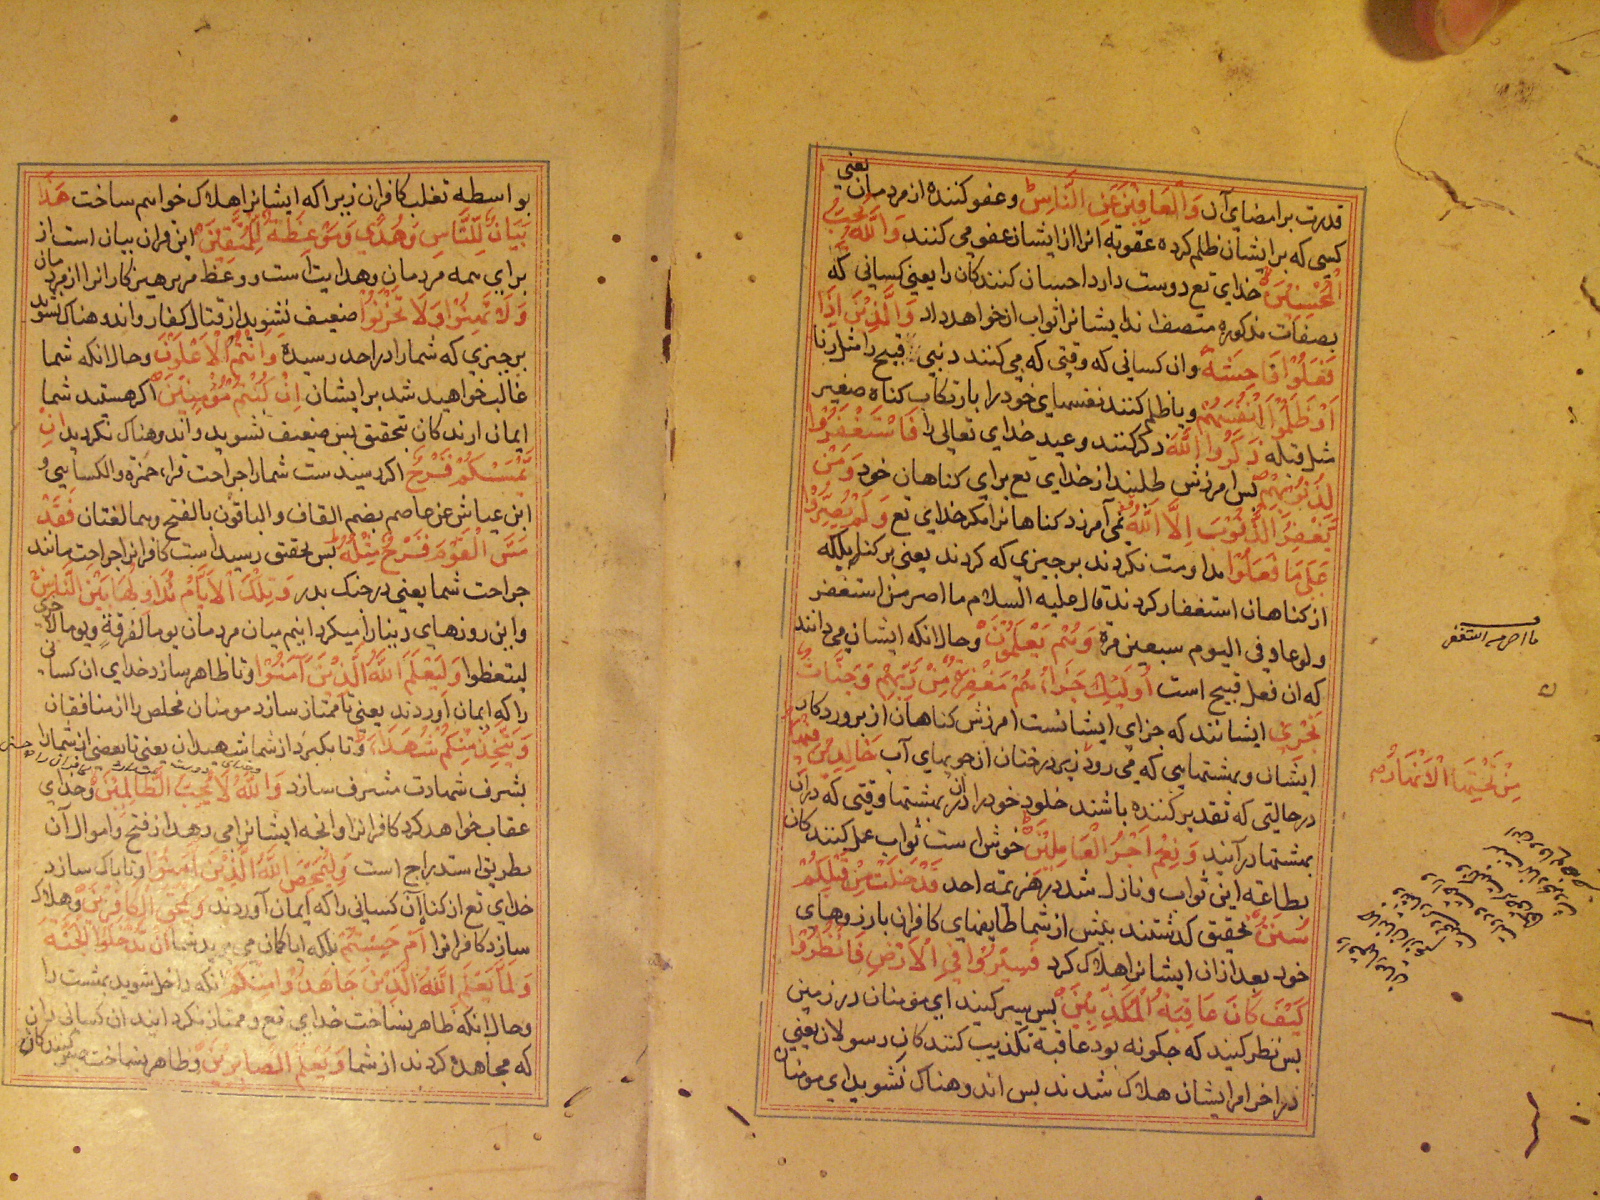 یعنی
قدرت بر امضای آن وَالْعَافِینَ عَنِ النَّاسِ و عفو کننده از مردمان
کسی که بر ایشان ظلم کرده عقوبة انرا از ایشان عفو می کنند وَاللَّهُ یُحِبُّ
الْمُحْسِنِینَ خدای تع دوست دارد احسان کنندکان را یعنی کسانی که
بصفات مذکوره متصف اند ایشانرا ثواب ان خواهد داد وَالَّذِینَ إِذَا
فَعَلُوْا فَاحِشَةً وان کسانی که وقتی که می کنند ذنبی قبیح را مثل زنا
اَوْ ظَلَمُوْا اَنْفُسَهُمْ و یا ظلم کنند نفسهای خود را بارتکاب کناه صغیر
مثل قبله ذَکَرُوا اللَّهَ ذکر کنند وعید خدای تعالی را فَاسْتَغْفَرُوْا
لِذُنُوْبِهِمْ بس امرزش طلبند از خدای تع برای کناهان خود وَمَنْ
یَغْفِرُ الذُّنُوْبَ اِلَّا اللَّهُ نمی آمرزد کناهانرا مکر خدای تع وَلَمْ یُصِرُّوْا
عَلَی مَا فَعَلُوْا مداومت نکردند بر جیزی که کردند یعنی بر کناه بلکه
از کناهان استغفار کردند قال علیه السلام ما اصر من استغفر
ولو عاد فی الیوم سبعین مرة وَهُمْ یَعْلَمُوْنَ وحالانکه ایشان می دانند
که ان فعل قبیح است اُولَئِكَ جَزَاءُهُمْ مَغْفِرَةٌ مِنْ رَبِّهِمْ وَجَنَّاتٌ
تَجْرِی ایشانند که جزای ایشانست امرزش کناهان از بروردکار
ایشان و بهشتهایی که می رود زیر درختان ان جویهای آب خَالِدِینَ فِیْهَا
در حالتی که تقدیر کننده باشند خلود خود را در ان بهشتها وقتی که در ان
بهشتها درآیند وَنِعْمَ اَجْرُ الْعَامِلِیْنَ خوش است ثواب عمل کنند کان
بطاعة این ثواب و نازل شد در هزیمة احد قَدْ خَلَتْ مِنْ قَبْلِکُمْ
سُنَنٌ تحقیق کذشتند بیش از شما طایفهای کافران بارزوهای
خود بعد ازان ایشانرا هلاک کرد فَسِیْرُوْا فِی الْاَرْضِ فَانْظُرُوْا
کَیْفَ کَانَ عَاقِبَةُ الْمُکَذِّبِیْنَ بس سیر کنید ای مؤمنان در زمین
بس نظر کنید که جکونه بود عاقبة تکذیب کنندکان رسولان یعنی
در اخر امر ایشان هلاک شدند بس اندوهناک نشوید ای مومنان
ما اصر من استغفر
مِنْ تَحْتِهَا الْاَنْهَارُ
بواسطه تغلب کافران زیرا که ایشانرا هلاک خواهم ساخت هَذَا
بَیَانٌ لِلنَّاسِ وَهُدًی وَمَوْعِظَةٌ لِلْمُتَّقِیْنَ این قران بیان است از
برای همه مردمان وهدایت است و وعظ مر برهیزکارانرا از مردمان
وَلَا تَهِنُوْا وَلَا تَحْزَنُوْا ضعیف نشوید از قتال کفار واندوهناک نشوید
بر جیزی که شمارا در احد رسیده وَاَنْتُمُ الْاَعْلَوْنَ وحالانکه شما
غالب خواهید شد بر ایشان اِنْ کُنْتُمْ مُؤْمِنِیْنَ اکر هستید شما
ایمان ارندکان بتحقیق بس ضعیف نشوید واندوهناک نکردید اِنْ
یَمْسَسْکُمْ قَرْحٌ اکر رسیدست شمارا جراحت قراء حمزه والکسایی و
ابن عیاش عن عاصم بضم القاف والباقون بالفتح وهما لغتان فَقَدْ
مَسَّ الْقَوْمَ قَرْحٌ مِثْلُهُ بس بتحقیق رسیدست کافرانرا جراحت مانند
جراحت شما یعنی در جنک بدر وَتِلْكَ الْاَیَّامُ نُدَاوِلُهَا بَیْنَ النَّاسِ
واین روزهای دینارا میکردانیم میان مردمان یوما لفرقة ویوما لاخری
لیتعظوا وَلِیَعْلَمَ اللَّهُ الَّذِیْنَ آمَنُوْا وتا ظاهر سازد خدای ان کسانی
را که ایمان آوردند یعنی تا ممتاز سازد مومنان مخلص را از منافقان
وَیَتَّخِذَ مِنْکُمْ شُهَدَاءَ وتا بکیرد از شما شهیدان یعنی تا بعضی از شمارا
بشرف شهادت مشرف سازد وَاللَّهُ لَا یُحِبُّ الظَّالِمِیْنَ وخدای
عقاب خواهد کرد کافرانرا وانجه ایشانرا می دهد از فتح واموال آن
بطریق استدراج است وَلِیُمَحِّصَ اللَّهُ الَّذِیْنَ آمَنُوْا وتا باک سازد
خدای تع از کناه آن کسانی را که ایمان آوردند وَیَمْحَقَ الْکَافِرِیْنَ وهلاک
سازد کافرانرا اَمْ حَسِبْتُمْ بلکه ایا کمان می برید شما اَنْ تَدْخُلُوا الْجَنَّةَ
وَلَمَّا یَعْلَمِ اللَّهُ الَّذِیْنَ جَاهَدُوْا مِنْکُمْ انکه داخل شوید بهشت را
وحالانکه ظاهر نساخت خدای تع وممتاز نکردانید ان کسانی را
که مجاهده کردند از شما وَیَعْلَمَ الصَّابِرِیْنَ وظاهر نساخت صبر کنندکان